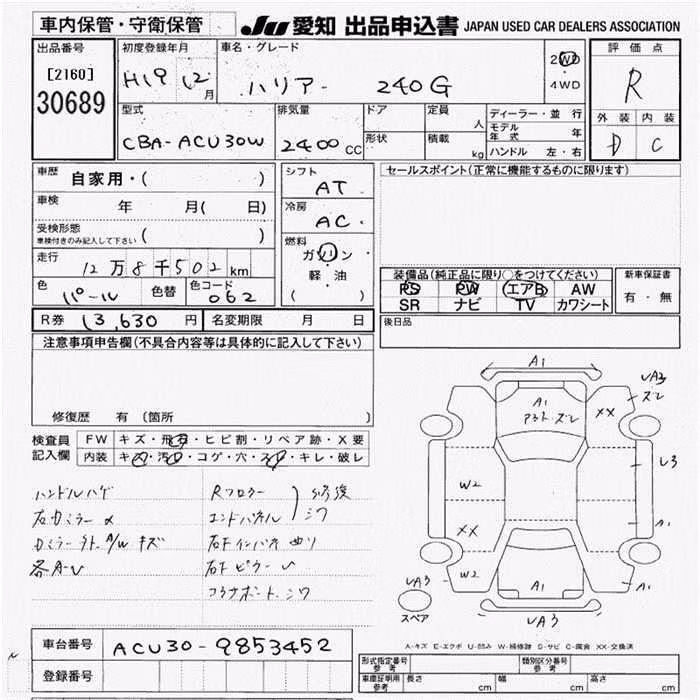 車内保管・守衛保管
JU 愛知 出品申込書 JAPAN USED CAR DEALERS ASSOCIATION
出品番号
[2160]
30689
初度登録年月
H19 12月
車名・グレード
ハリアー 240G
2WD
・
4WD
評価点
R
外装 内装
D C
型式
CBA-ACU30W
排気量
2400cc
ドア
形状
定員
人
積載
kg
ディーラー・並行
モデル年式 年
ハンドル 左・右
車歴
自家用・( )
車検
年 月( 日)
受検形態
車検付きのみ記入して下さい ( )
走行
12万8千502km
色
パール
色替
色コード
062
シフト
AT
冷房
AC
燃料
ガソリン
・
軽・油
( )
セールスポイント(正常に機能するものに限ります)
装備品(純正品に限り○をつけてください)
PS PW エアB AW
SR ナビ TV カワシート
新車保証書
有・無
R券 13,630円
名変期限 月 日
後日品
注意事項申告欄(不具合内容等は具体的に記入して下さい)
修復歴 有 (箇所
検査員
記入欄
FW キズ・飛石・ヒビ割・リペア跡・X要
内装 キズ・汚レ・コゲ・穴・スレ・キレ・破レ
ハンドルハゲ
右カミラー
カミラー A/W キズ
各A-U
Rフロアー
エンドパネル
修復
シワ
右F インパネ
右F ピラー
コアサポート シワ
A1
A1
UA3
ズレ
XX
W2
L3
XX
A1
W2
A1
A1
UA3
スペア
UA3
A-キズ E-エクボ U-凹み W-補修跡 S-サビ C-腐食 XX-交換済
車台番号
ACU30-9853452
登録番号
形式指定番号
参考
類別区分番号
参考
車庫証明用
参考
長さ cm 幅 cm 高さ cm